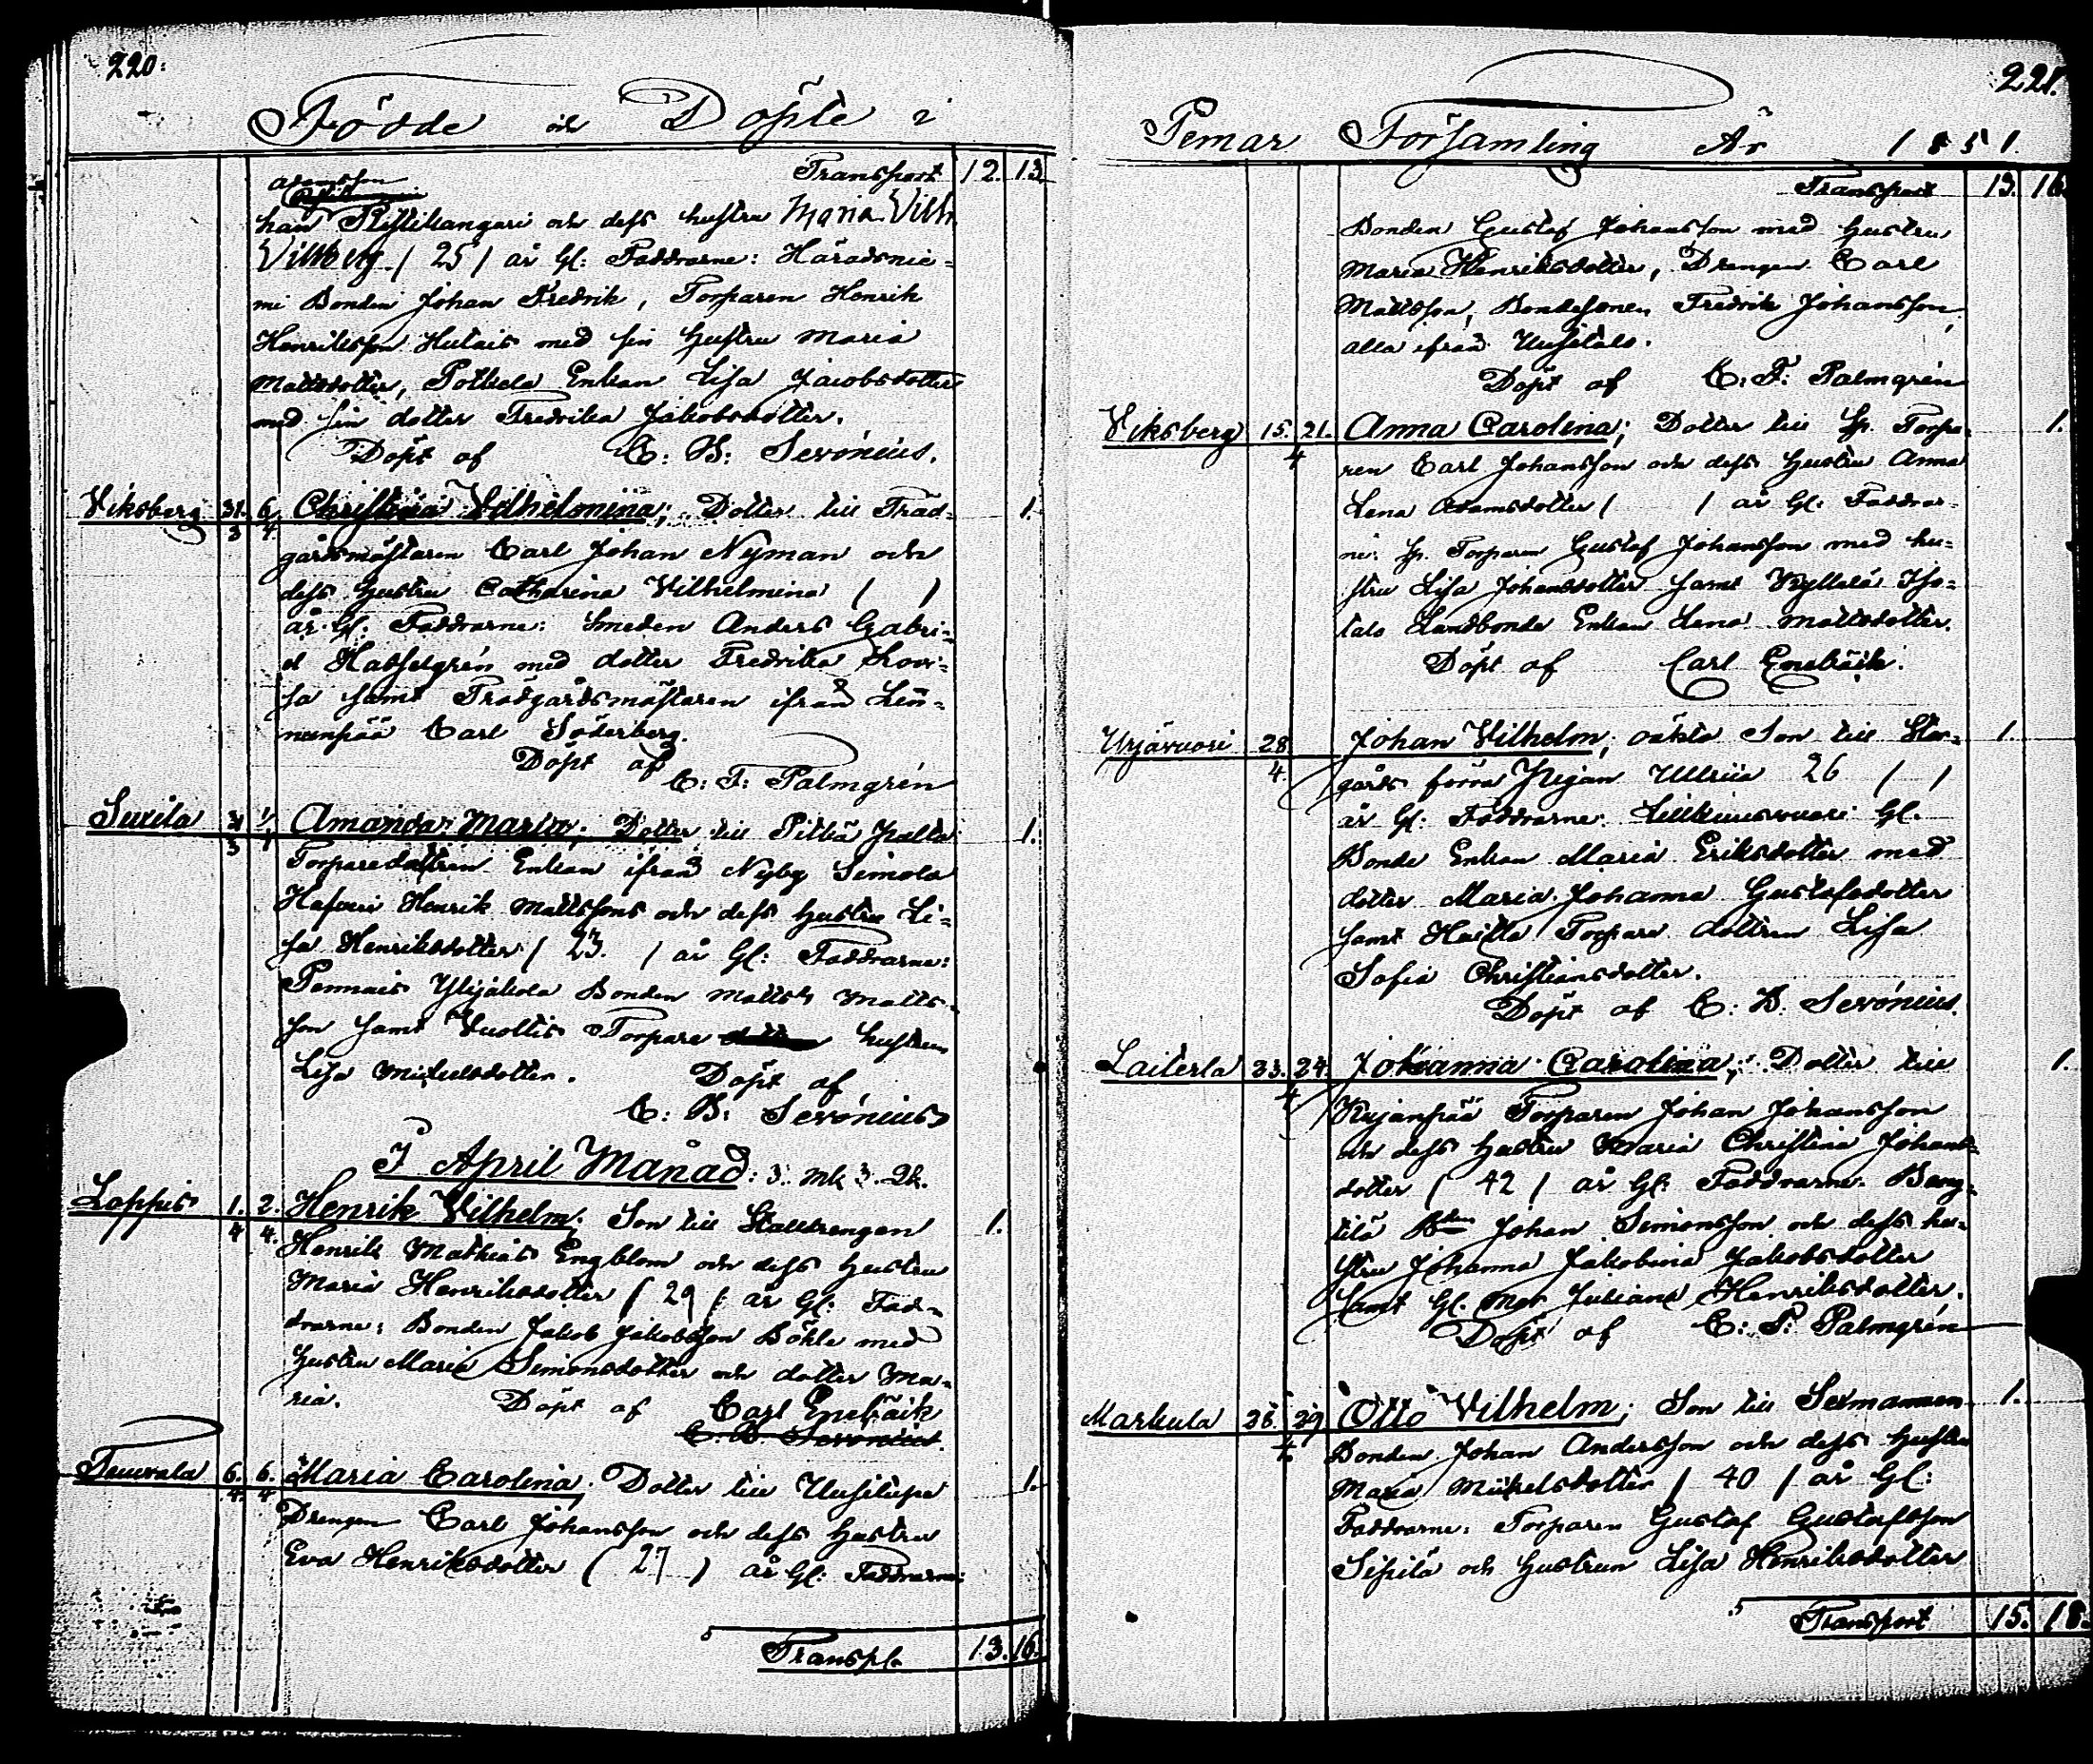 220.
Födde och Döpte i
Transport 12. 13.
Adamsson
han Ristikangari och dess hustru Maria Vilh.
Vihlberg / 25 / år Gl: Faddrarne: Häradsnie-
mi Bonden Johan Fredrik, Torparen Henrik
Henriksson Hulais med sin Hustru Maria
Mattsdotter, Pottila Enkan Lisa Jacobsdotter
med sin dotter Fredrika Jakobsdotter.
Döpt af C: B: Serónius.
Viksberg 31. 6. Christina Vilhelmina; Dotter till Träd- 1.
3 4
gårdsmästaren Carl Johan Nyman och
dess Hustru Catharina Vilhelmina / /
år Gl: Faddrarne: Smeden Anders Gabri-
el Hasselgrén med dotter Fredrika Lovi-
sa samt Trädgårdsmästaren ifrån Lin-
nunpää Carl Söderberg.
Döpt af
C: F: Palmgrén
31 Amanda Maria; Dotter till Pitkäpalta 1.
3
Torparedottren Enkan ifrån Nyby Simola
Henrik Mattssons och dess Hustru Li-
sa Henriksdotter / 23. / år Gl: Faddrarne:
Pännais Ylijakola Bonden Matts Matts-
son samt Vuoltis Torpare hustrun
Lisa Mickelsdotter. Döpt af
C: B: Serónius
I April Månad: 3. Mk 3. Qk.
Loppis 1. 2. Henrik Vilhelm; Son till Stalldrengen 1.
4 4.
Henrik Mathias Engblom och dess Hustru
Maria Henriksdotter / 29 / år Gl: Fad-
drarne: Bonden Jakob Jakobsson Bökle med
Hustru Maria Simonsdotter och dotter Ma-
ria. Döpt af Carl Enebäck
C. B. Serónius.
Teuvala 6. 6. Maria Carolina. Dotter till Uusitupa 1.
4. 4
Drengen Carl Johansson och dess Hustru
Eva Henriksdotter ( 27 ) år Gl: Faddrarne:
Transp. 13. 16.
221.
Pemar Församling År 1851.
Transport 13. 16.
Bonden Gustaf Johansson med Hustru
Maria Henriksdotter, Drengen Carl
Mattsson, Bondesonen Fredrik Johansson,
alla ifrån Uusitalo.
Döpt af C: F: Palmgrén
Viksberg 15. 21. Anna Carolina; Dotter till Sp. Torpa- 1.
4
ren Carl Johansson och dess Hustru Anna
Lena Adamsdotter / / år Gl: Faddrar-
ne: Sp. Torparen Gustaf Johansson med hu-
stru Lisa Johansdotter samt Kyllälä Iso-
talo Landbonde Enkan Lena Mattsdotter.
Döpt af Carl Enebäck.
28 Johan Vilhelm; oäkta Son till Stor- 1.
4.
gårds förra Pigan Ullrika 26 / /
år Gl: Faddrarne: Gl.
Bonde Enkan Maria Eriksdotter med
dotter Maria Johanna Gustafsdotter
samt Torpare dottren Lisa
Sofia Christiansdotter.
Döpt af C: B. Serónius.
Laiterla 23. 24. Johanna Carolina; Dotter till 1.
4
Kujanpää Torparen Johan Johansson
och dess Hustru Maria Christina Johans-
dotter / 42 / år Gl: Faddrarne: Beng-
tilä Bden Johan Simonsson och dess hu-
stru Johanna Jakobina Jakobsdotter
samt Gl. Mor Juliana Henriksdotter.
Döpt af C: F: Palmgrén
Markula 28. 29 Otto Vilhelm; Son till Sexmannen 1.
4
Bonden Johan Andersson och dess Hustru
Maria Mickelsdotter / 40 / år Gl:
Faddrarne: Torparen Gustaf Gustafsson
Sipilä och Hustrun Lisa Henriksdotter
Transport 15. 18.